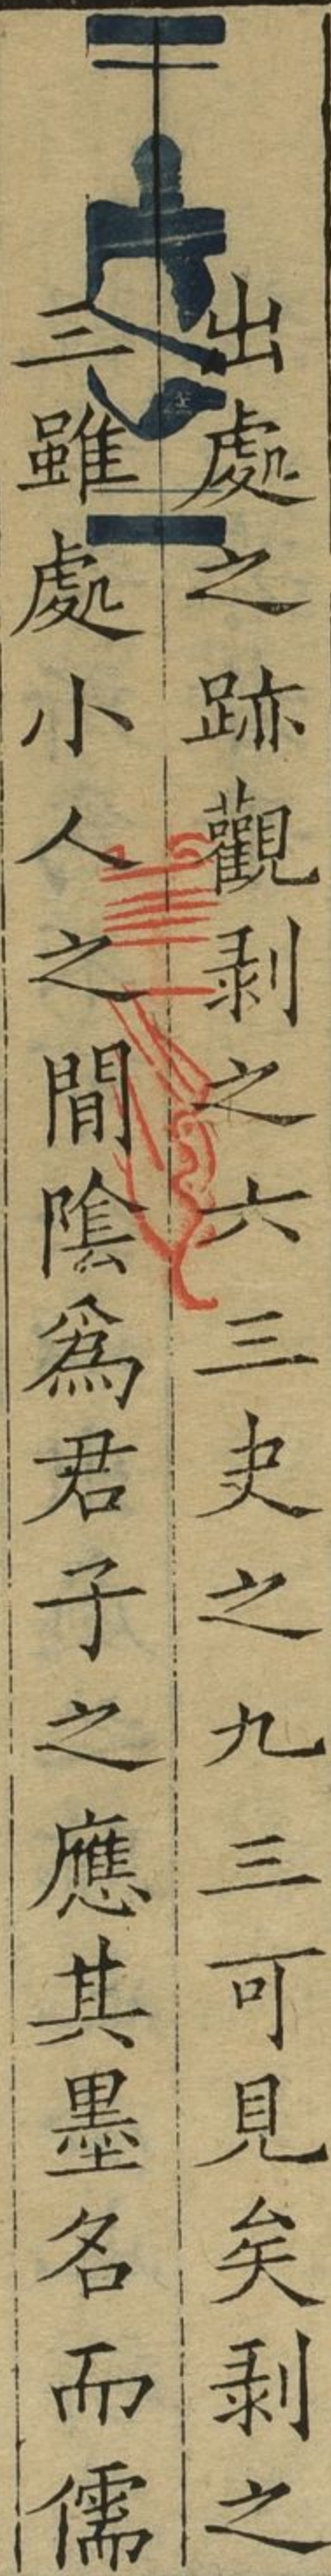 出處之跡觀剥之六三夬之九三可見矣剥之
三雖處小人之間隂爲君子之應其墨名而儒